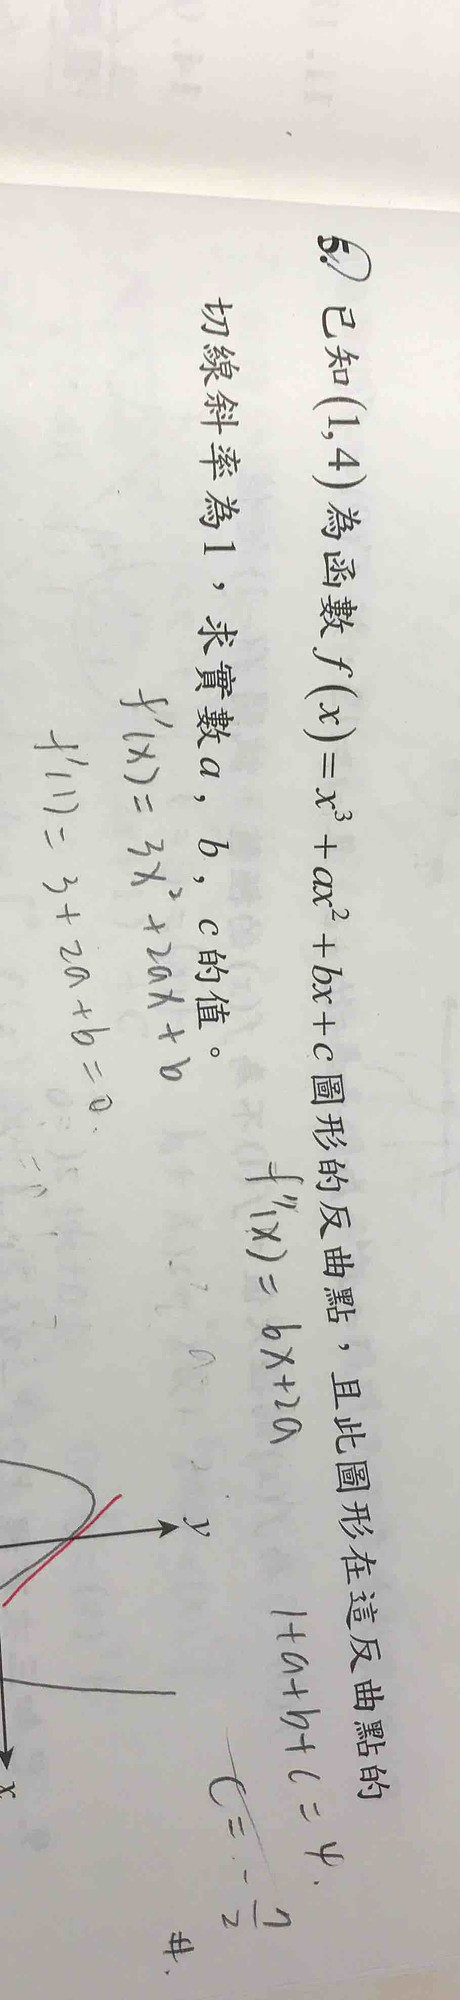 5. 已知(1,4)為函數f(x)=x³+ax²+bx+c圖形的反曲點，且此圖形在這反曲點的
切線斜率為1，求實數a，b，c的值。
f''(x)=6x+2a
1+a+b+c=4.
f'(x)=3x²+2ax+b
c=-7/2
#.
f'(1)=3+2a+b=0.
y
x